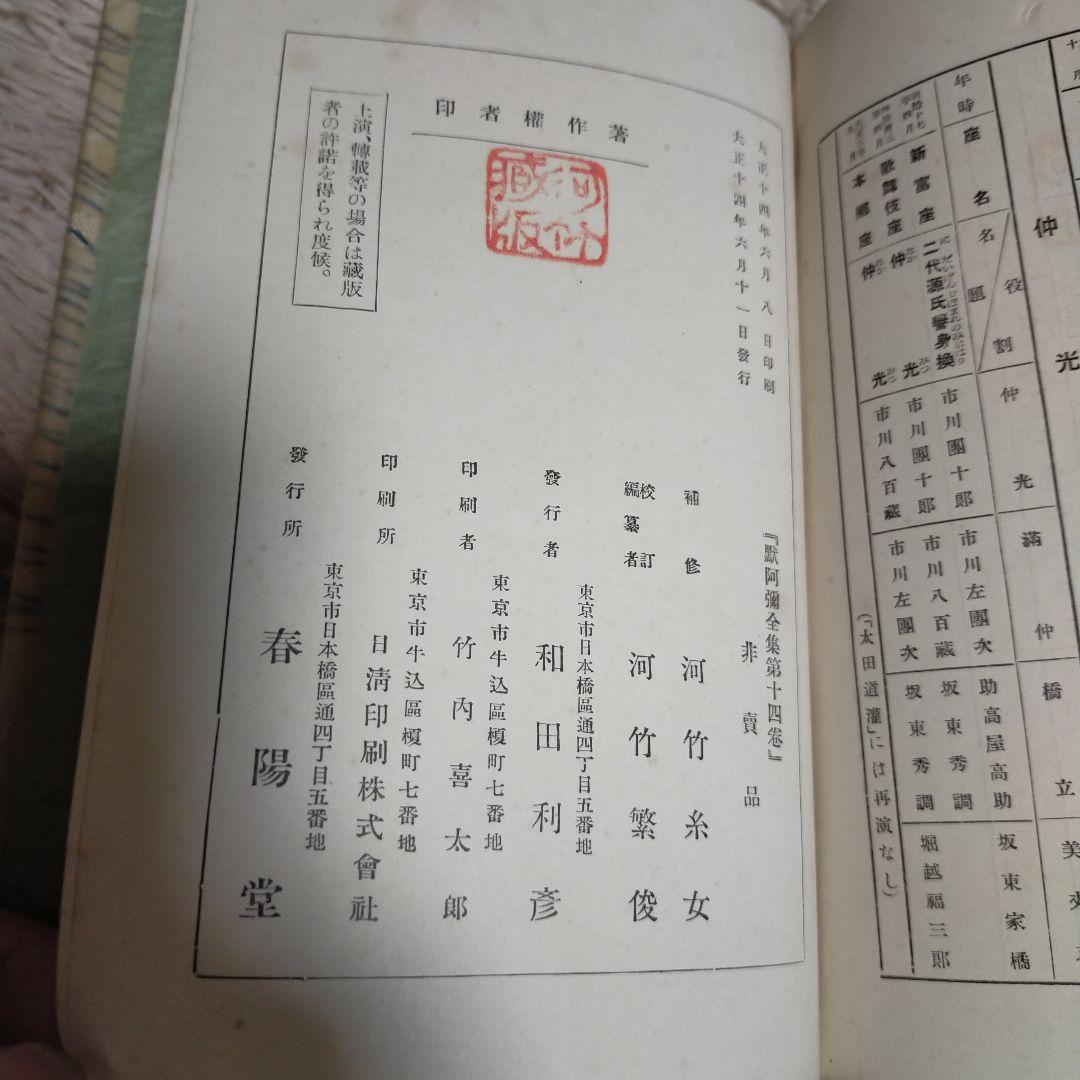 十
仲光
年時
座名
名題
役割
仲光
滿仲
橋立
美
新富座
二代源氏譽身換
にだいげんじほまれのみがはり
市川團十郎
市川左團次
助高屋高助
坂東家橘
歌舞伎座
仲光
なか みつ
市川團十郎
市川八百藏
坂東秀調
堀越福三郎
本鄕座
仲光
なか みつ
市川八百藏
市川左團次
坂東秀調
(「太田道灌」には再演なし)
大正十四年六月八日印刷
大正十四年六月十一日發行
『默阿彌全集第十四卷』
非賣品
著作權者印
河竹藏版
上演、轉載等の場合は藏版
者の許諾を得られ度候。
補修 河竹糸女
校訂編纂者 河竹繁俊
東京市日本橋區通四丁目五番地
發行者 和田利彥
東京市牛込區榎町七番地
印刷者 竹內喜太郎
東京市牛込區榎町七番地
印刷所 日淸印刷株式會社
東京市日本橋區通四丁目五番地
發行所 春陽堂